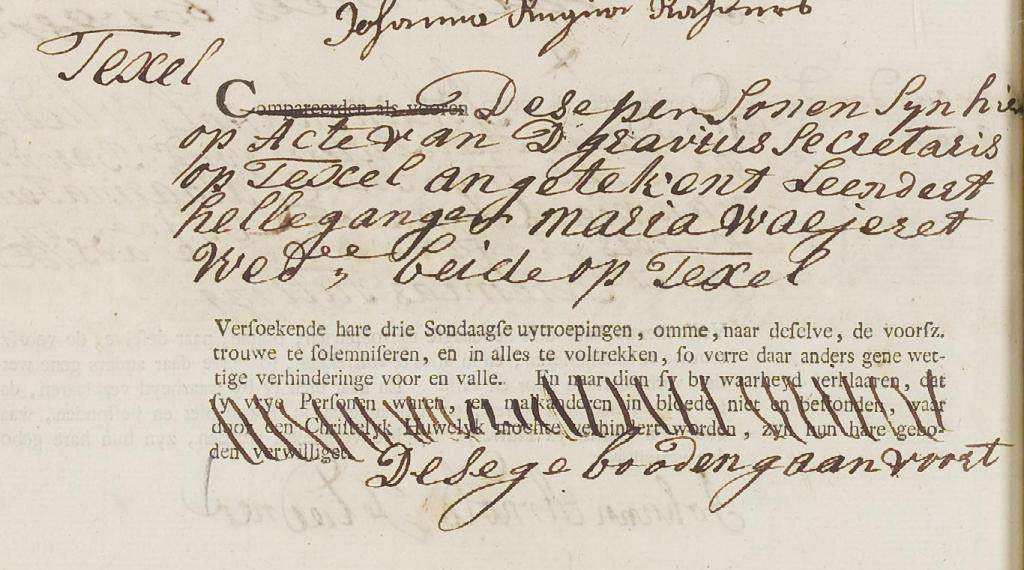 Johanna Regina
Texel
Compareerden als vooren Dese per Sonen Syn hier
op Acte van D gravius Secretaris
op Texel an getekent Leendert
helleganger maria waejeret
Wed.ee beide op Texel
Versoekende hare drie Sondaagse uytroepingen, omme, naar deselve, de voorsz.
trouwe te solemniseren, en in alles te voltrekken, so verre daar anders gene wet-
tige verhinderinge voor en valle. En naar dien sy by waarheyd verklaaren, dat
sy vrye Personen waren, en malkanderen in bloede niet en bestonden, waar
door een Christelyk Huwelyk mochte verhindert worden, zyn hun hare gebo-
den verwilliget.
Dese ge booden gaan voort